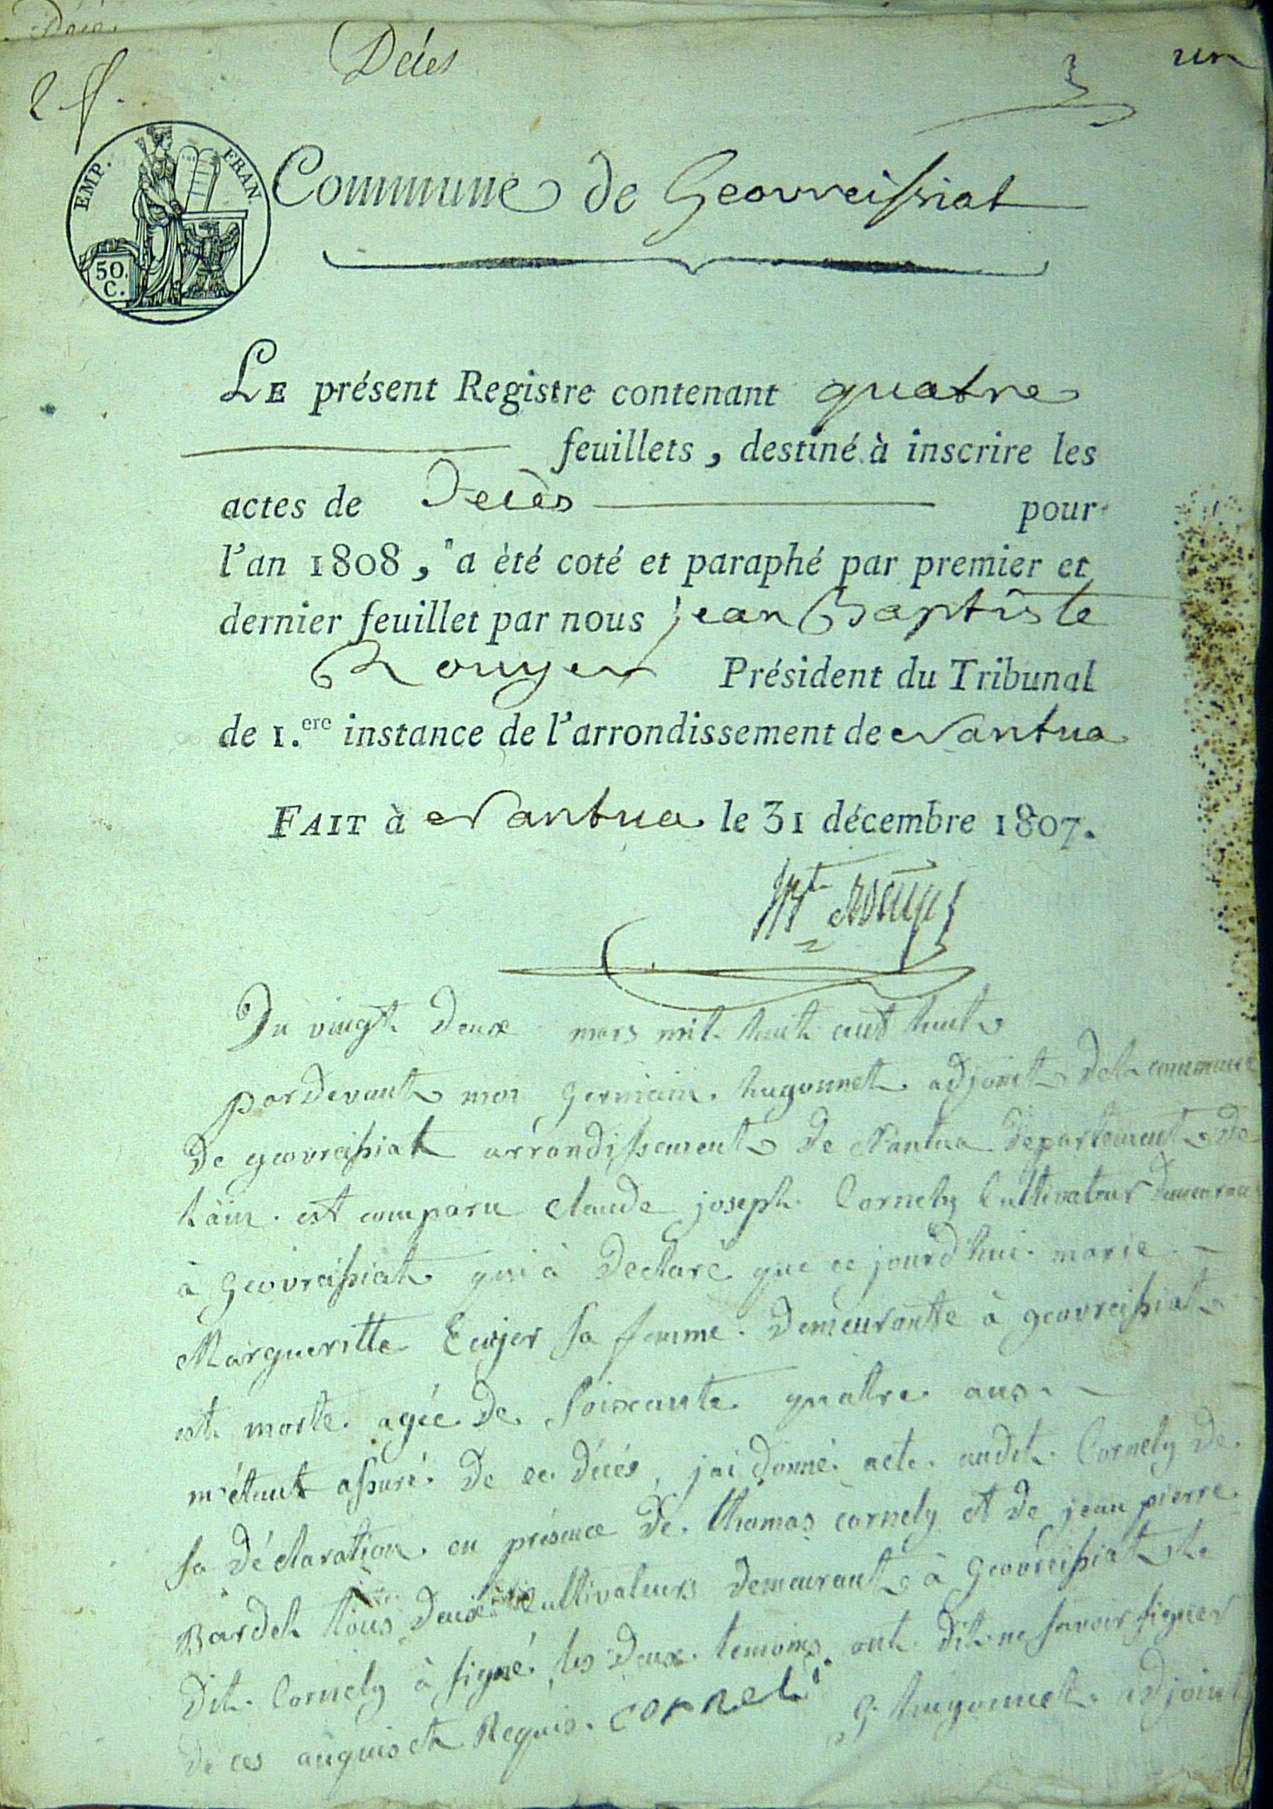 Décès
2 f.
3
un
EMP. FRAN
50. C.
Commune de Geovreissiat
LE présent Registre contenant quatre
feuillets, destiné à inscrire les
actes de Decès pour
l'an 1808, a èté coté et paraphé par premier et
dernier feuillet par nous jean Baptiste
Rouyer Président du Tribunal
de 1.ere instance de l'arrondissement de Nantua
FAIT à Nantua le 31 décembre 1807.
Bte Rouyer
Du vingt deux mars mil huit cent huit
pardevant moi germain hugonnet adjoint de la commune
de geovreissiat arrondissement de Nantua departement de
lain est comparu claude joseph Cornely Cultivateur demeurant
à geovreissiat qui à declaré que ce jourd'hui marie
Margueritte Ecujer sa femme demeurantte à geovreissiat
est morte agée de soixante quattre ans
m'étant assuré de ce décés jai donné acte audit Cornely de
sa déclaration en présence de thomas cornely et de jean pierre
Bardet tous deux cultivateurs demeurant à Geovreissiat le
dit Cornely à signé les deux temoins ont dit ne savoir signer
de ces anquis et Requis. corneli g. hugonnet adjoint